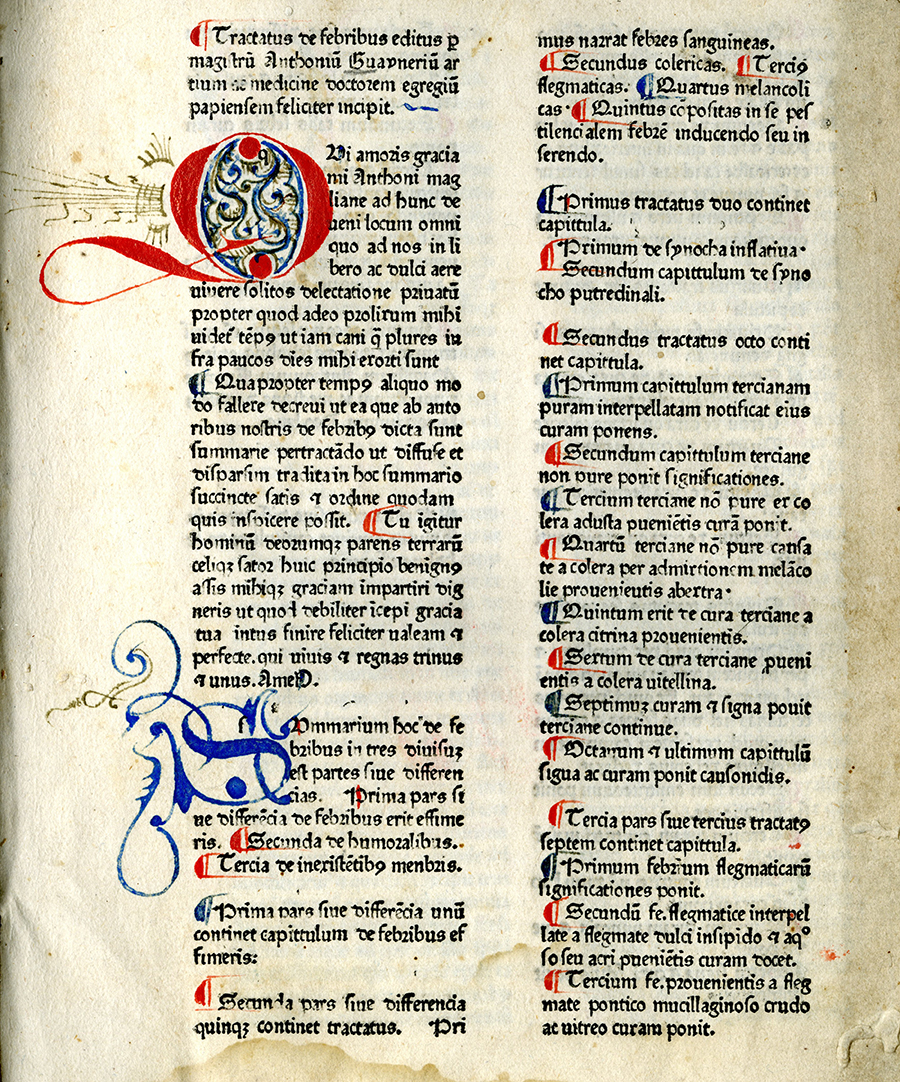 ¶ Tractatus de febribus editus ꝑ
magistrũ Anthoniũ Guayneriũ ar
tium ac medicine doctorem egregiũ
papiensem feliciter incipit.
QVi amoris gracia
mi Anthoni mag
liane ad hunc de
ueni locum omni
quo ad nos in li
bero ac dulci aere
uiuere solitos delectatione priuatũ
propter quod adeo prolixum mihi
uidet᷑ tẽpꝰ ut iam cani q̃ plures in
fra paucos dies mihi exorti sunt
¶ Quapropter tempꝰ aliquo mo
do fallere decreui ut ea que ab auto
ribus nostris de febribꝰ dicta sunt
summarie pertractãdo ut diffuse et
disparsim tradita in hoc summario
succincte satis ⁊ ordine quodam
quis inspicere possit. ¶ Tu igitur
hominũ deorumqꝫ parens terrarũ
celiqꝫ sator huic principio benignꝰ
assis mihiqꝫ graciam impartiri dig
neris ut quod debiliter ĩcepi gracia
tua intus finire feliciter ualeam ⁊
perfecte. qui uiuis ⁊ regnas trinus
⁊ unus. Amen.
SVmmarium hoc de fe
bribus in tres diuisuꝫ
est partes siue differen
cias. Prima pars si
ue differẽcia de febribus erit effime
ris. ¶ Secunda de humoralibus.
¶ Tercia de inexistẽtibꝰ menbris.
¶ Prima pars siue differẽcia unũ
continet capittulum de febribus ef
fimeris:
¶ Secunda pars siue differencia
quinqꝫ continet tractatus. Pri
mus narrat febres sanguineas.
¶ Secundus colericas. ¶ Terciꝰ
flegmaticas. ¶ Quartus melancoli
cas· ¶ Quintus cõpositas in se pes
tilencialem febrẽ inducendo seu in
serendo.
¶ Primus tractatus duo continet
capittula.
¶ Primum de synocha inflatiua·
Secundum capittulum de syno
cho putredinali.
¶ Secundus tractatus octo conti
net capittula.
¶ Primum capittulum tercianam
puram interpellatam notificat eius
curam ponens.
¶ Secundum capittulum terciane
non pure ponit significationes.
¶ Tercium terciane nõ pure ex co
lera adusta ꝓueniẽtis curã ponit.
¶ Quartũ terciane nõ pure causa
te a colera per admixtionem melãco
lie prouenieutis abextra·
¶ Quintum erit de cura terciane a
colera citrina prouenientis.
¶ Sextum de cura terciane ꝓueni
entis a colera uitellina.
¶ Septimuꝫ curam ⁊ signa pouit
terciane continue.
¶ Octauum ⁊ ultimum capittulũ
sigua ac curam ponit causonidis.
¶ Tercia pars siue tercius tractatꝰ
septem continet capittula.
¶ Primum febrium flegmaticarũ
significationes ponit.
¶ Secundũ fe. flegmatice interpel
late a flegmate dulci insipido ⁊ aqº
so seu acri ꝓueniẽtis curam docet.
¶ Tercium fe. prouenientis a fleg
mate pontico mucillaginoso crudo
ac uitreo curam ponit.